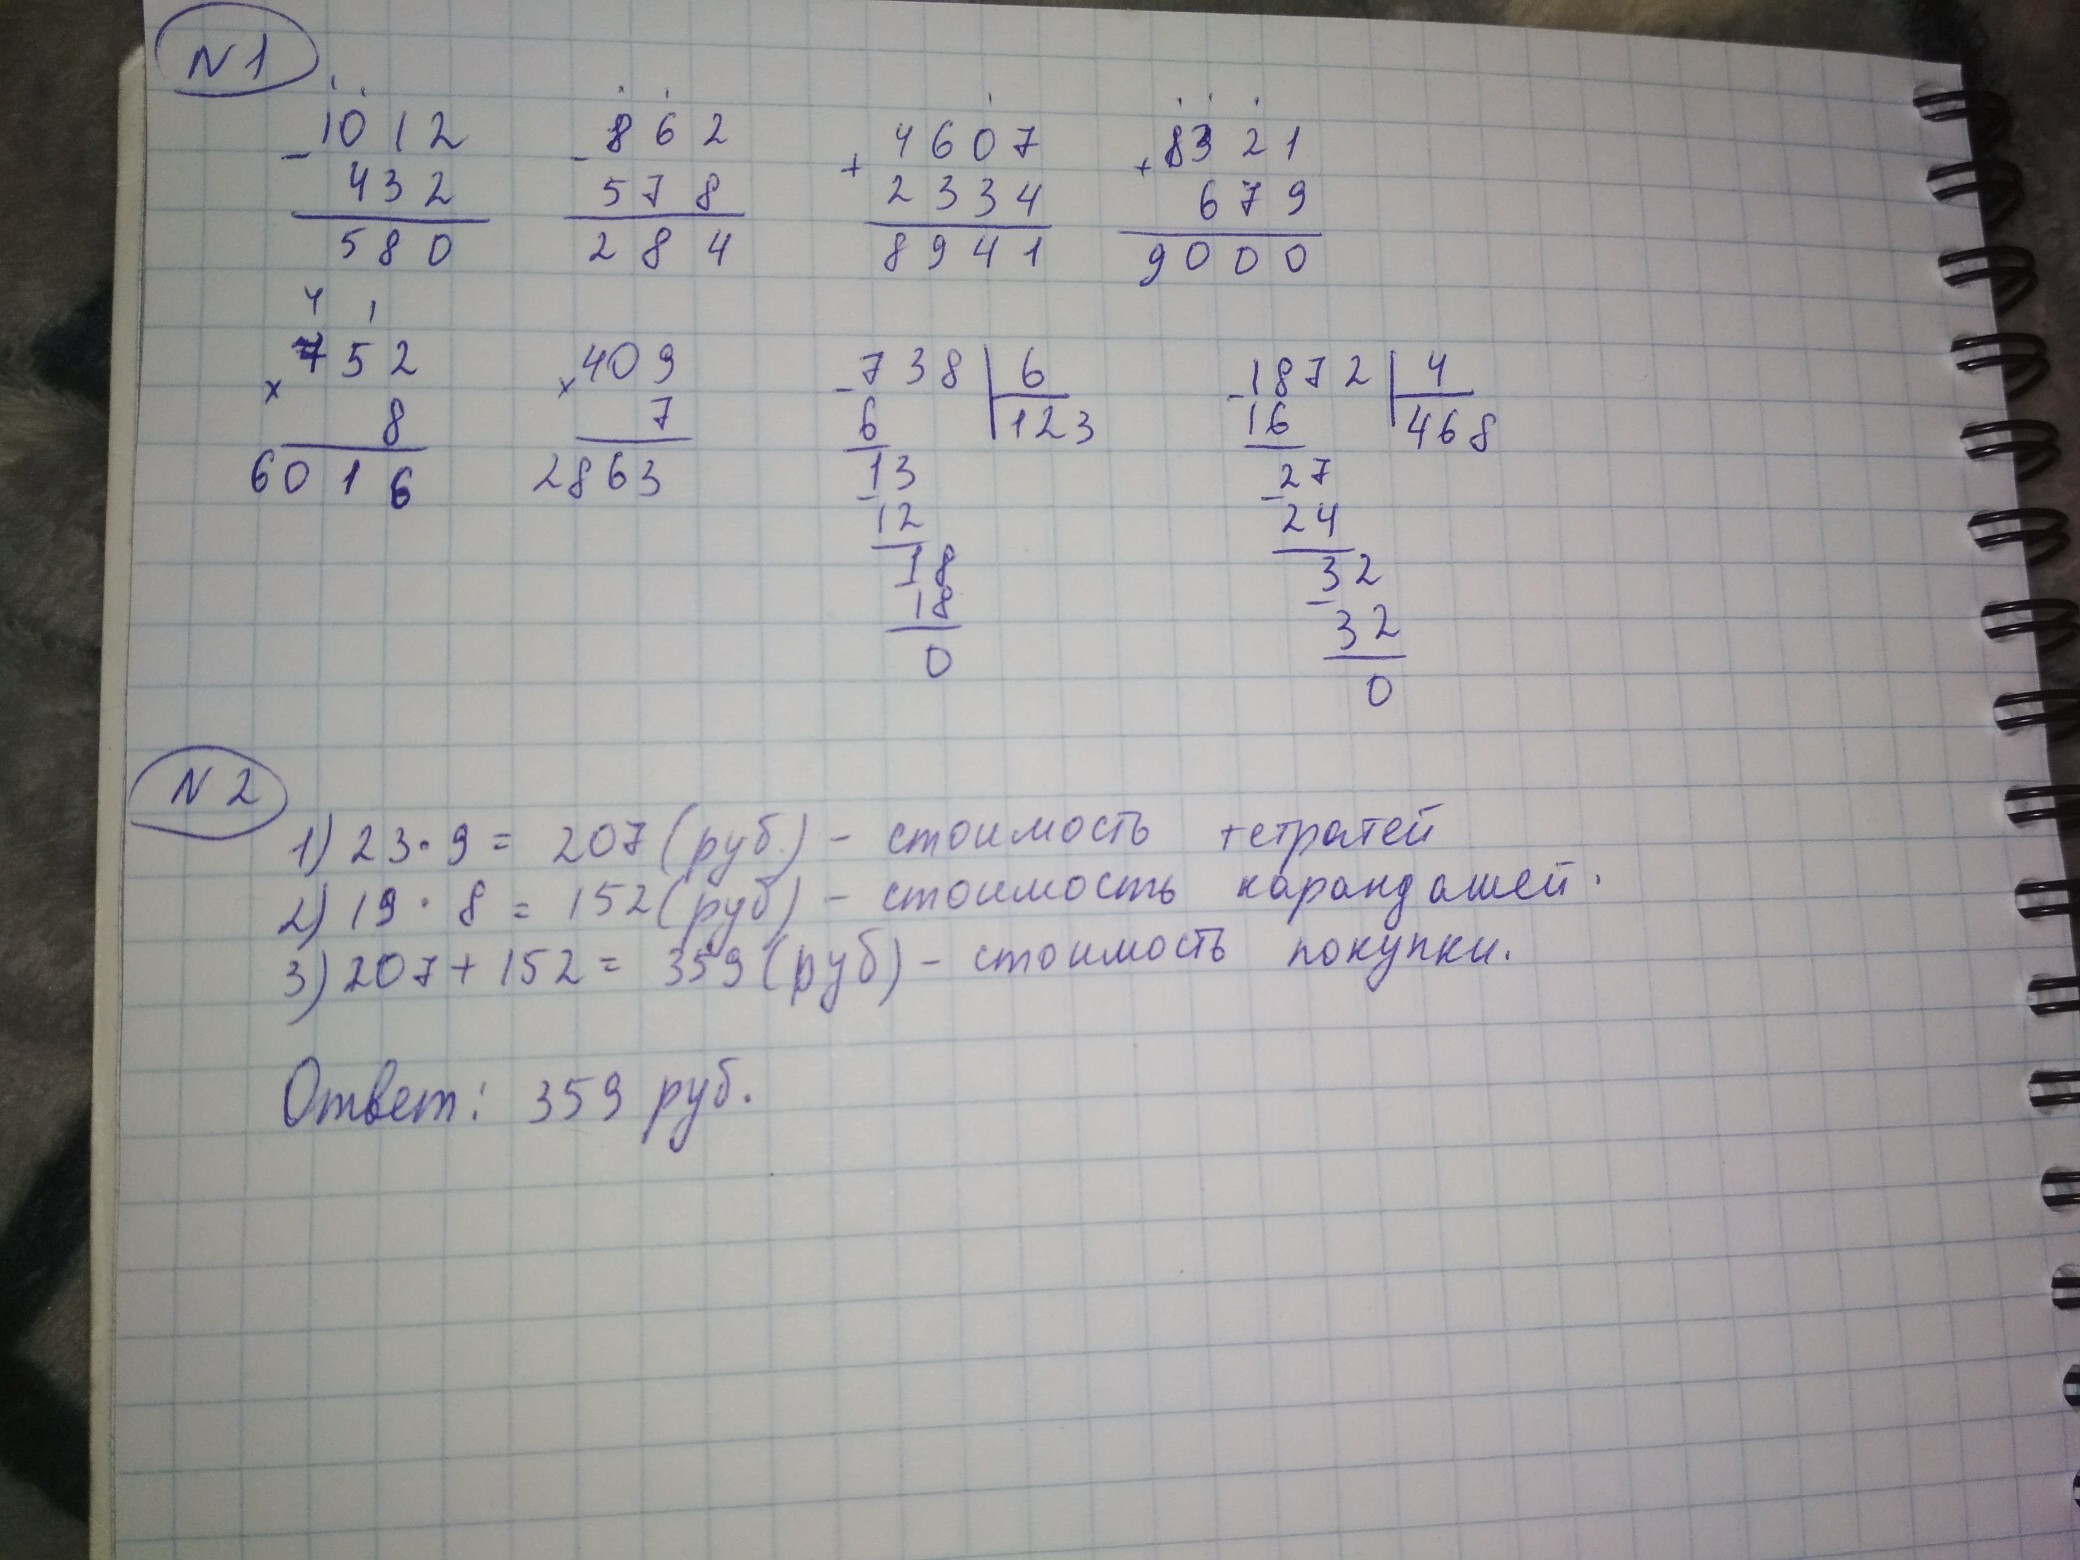 N 1
1012 862 4607 8321
- - + +
432 578 2334 679
580 284 8941 9000
4 1
752 409 738 | 6 1872 | 4
× 8 × 7 - 6 123 - 16 468
6016 2863 13 27
- 12 - 24
18 32
18 - 32
0 0
N 2
1) 23 · 9 = 207 (руб.) - стоимость тетратей
2) 19 · 8 = 152 (руб) - стоимость карандашей.
3) 207 + 152 = 359 (руб) - стоимость покупки.
Ответ: 359 руб.